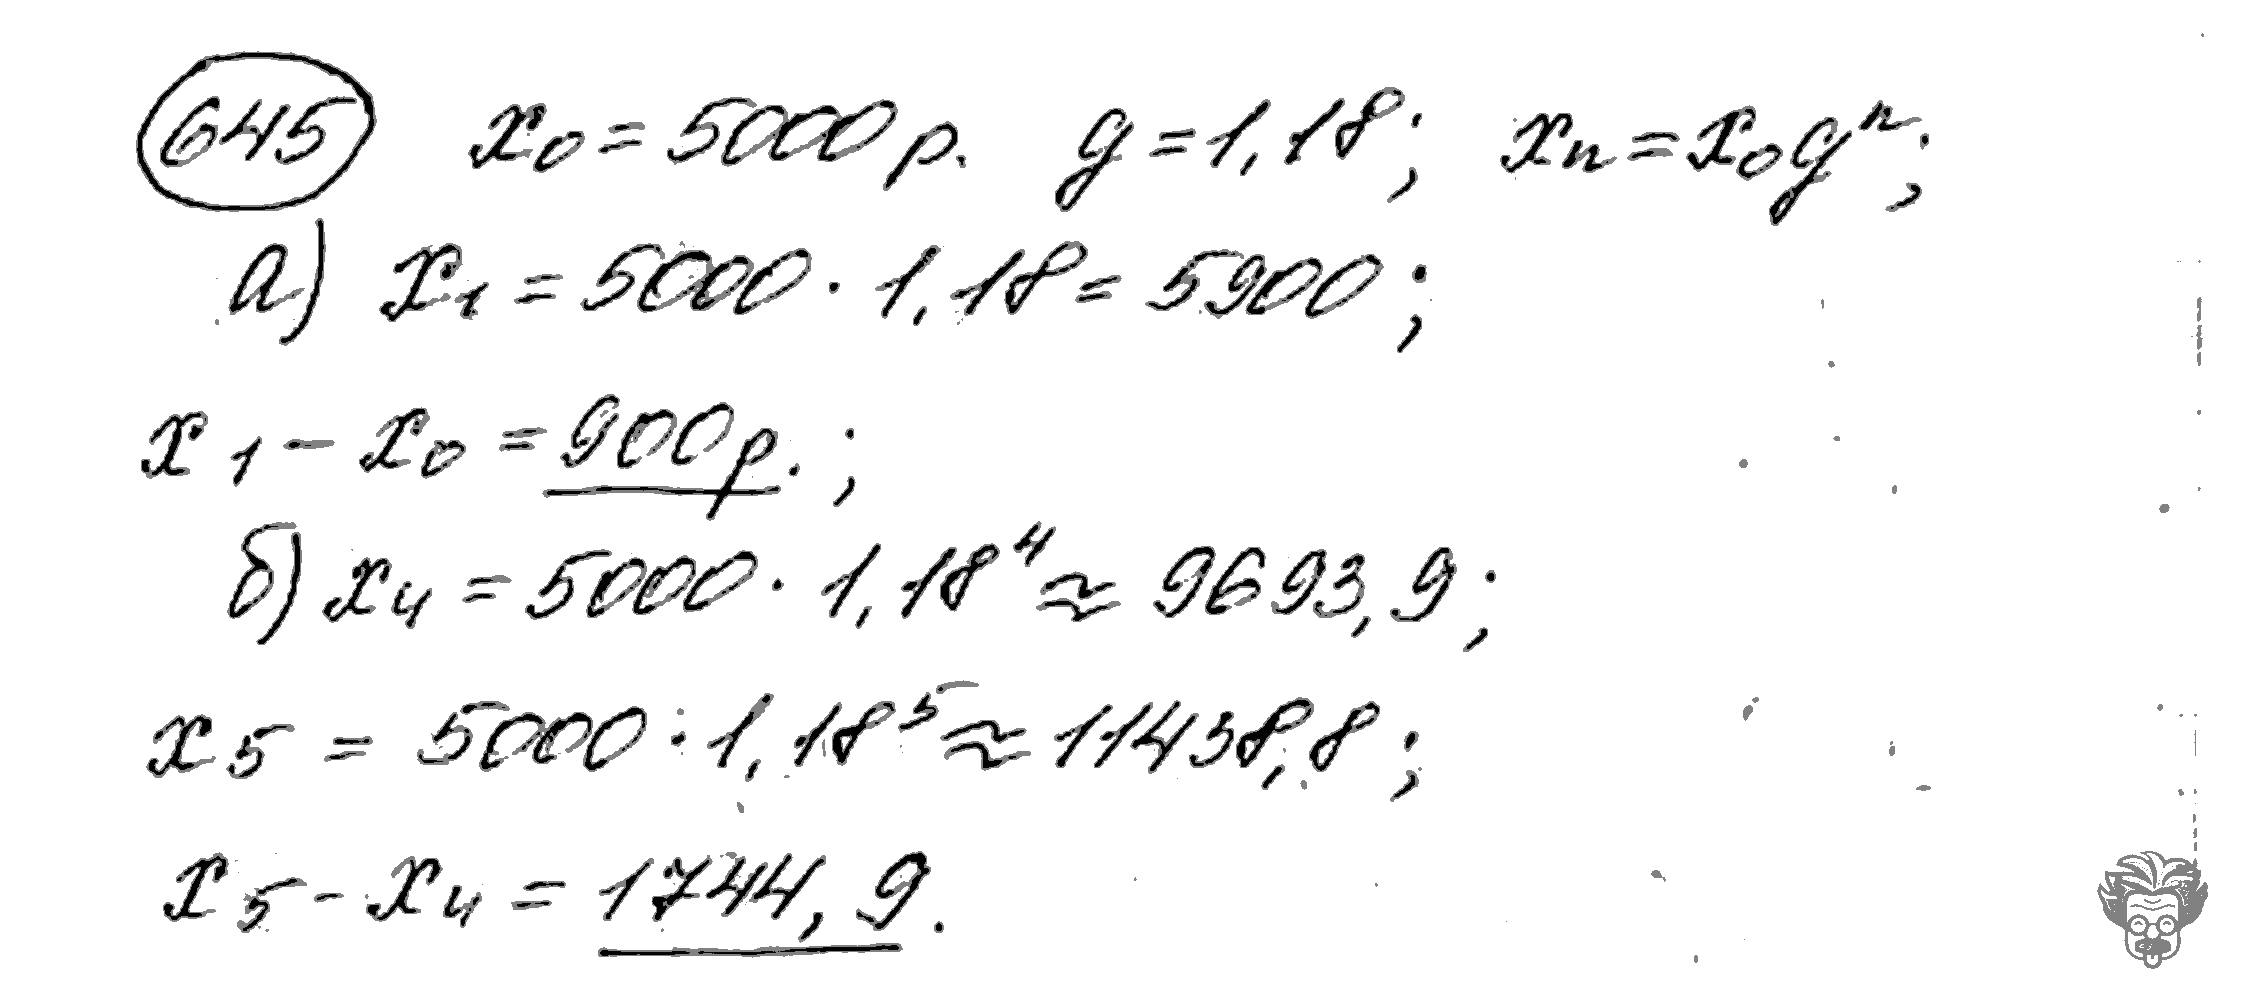 645 x₀ = 5000 р. g = 1,18; xₙ = x₀gⁿ;
а) x₁ = 5000 · 1,18 = 5900;
x₁ - x₀ = 900 р.;
б) x₄ = 5000 · 1,18⁴ ≈ 9693,9;
x₅ = 5000 · 1,18⁵ ≈ 11438,8;
x₅ - x₄ = 1744,9.